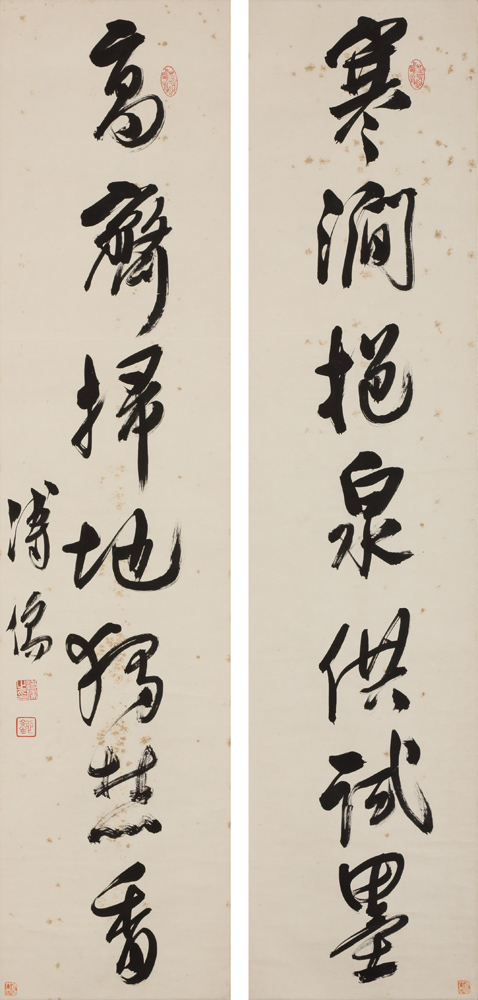 寒澗挹泉供試墨
高齋掃地獨焚香
溥儒